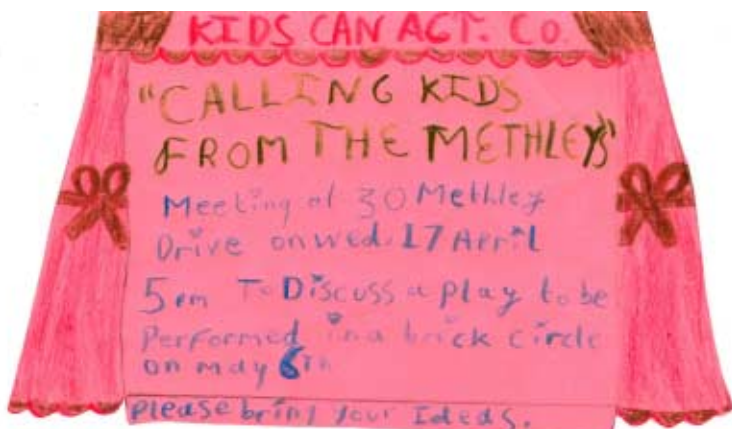 KIDS CAN ACT. CO.
"CALLING KIDS
FROM THE METHLEYS"
Meeting at 30 Methley
Drive on wed. 17 April
5pm To Discuss a play to be
Performed in a brick circle
on may 6th
please bring your Ideas.